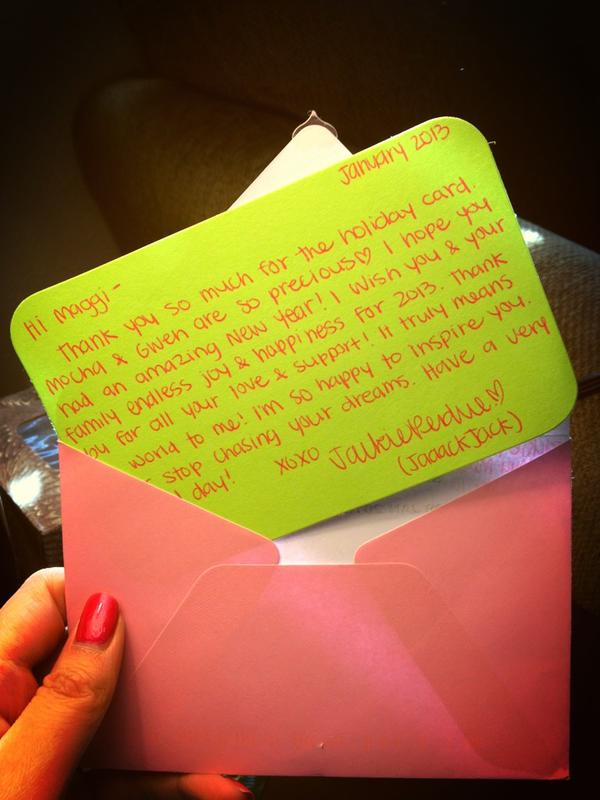 January 2013
Hi Maggi-
Thank you so much for the holiday card.
Mocha & Gwen are so precious♡ I hope you
had an amazing New Year! I wish you & your
family endless joy & happiness for 2013. Thank
you for all your love & support! It truly means
world to me! I'm so happy to inspire you.
stop chasing your dreams. Have a very
day!
xoxo Jackie Perdue♡
(JaaackJack)